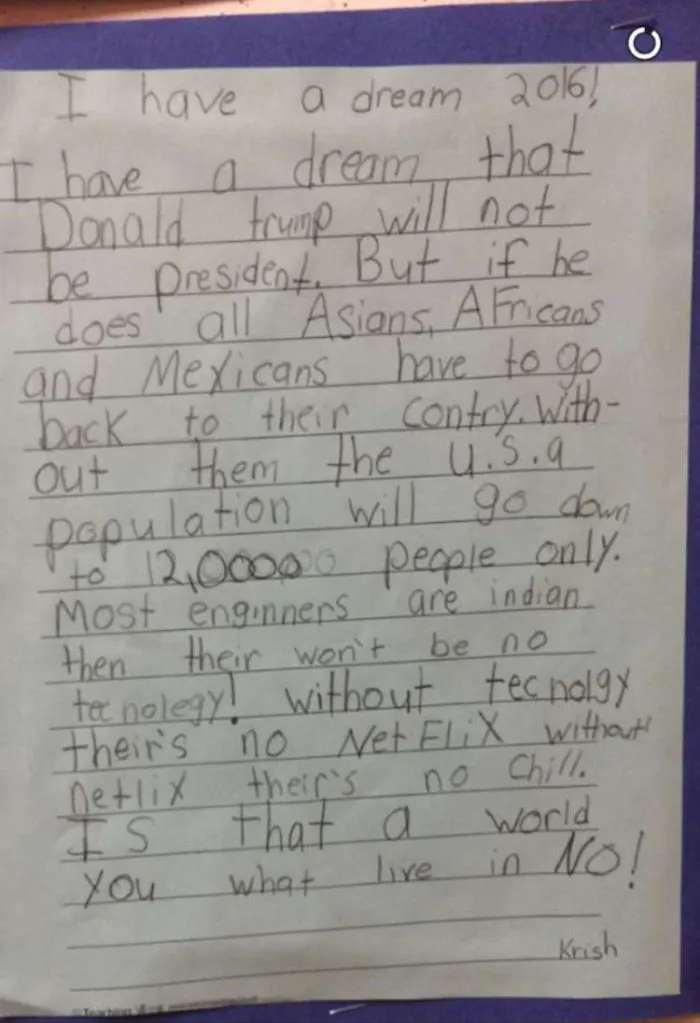 I have a dream 2016!
I have a dream that
Donald trump will not
be president. But if he
does all Asians, AFricans
and Mexicans have to go
back to their contry. With-
out them the U.S.a
population will go down
to 12,000000 people only.
Most enginners are indian
then their won't be no
tecnolegy! without tecnolgy
their's no NetFliX without
netlix their's no Chill.
IS that a world
you what live in NO!
Krish